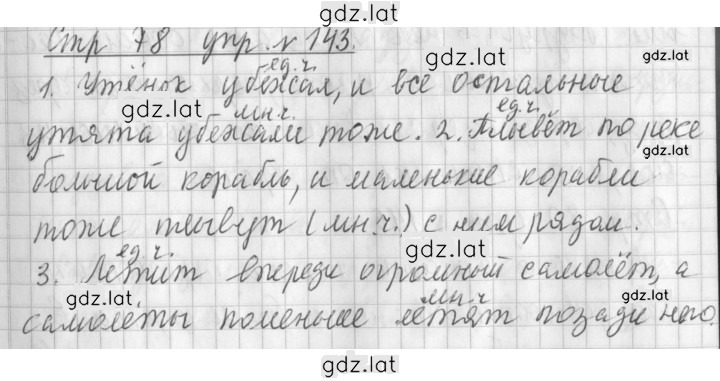 gdz.lat
Стр 78 упр. № 143.
gdz.lat
ед.ч.
1. Утёнок убежал, и все остальные
gdz.lat
мн.ч.
ед.ч.
утята убежали тоже. 2. Плывёт по реке
gdz.lat
большой корабль, и маленькие корабли
тоже плывут (мн.ч.) с ним рядом.
gdz.lat
ед.ч.
3. Летит впереди огромный самолёт, а
gdz.lat
мн.ч
gdz.lat
самолёты поменьше летят позади него.
gdz.lat